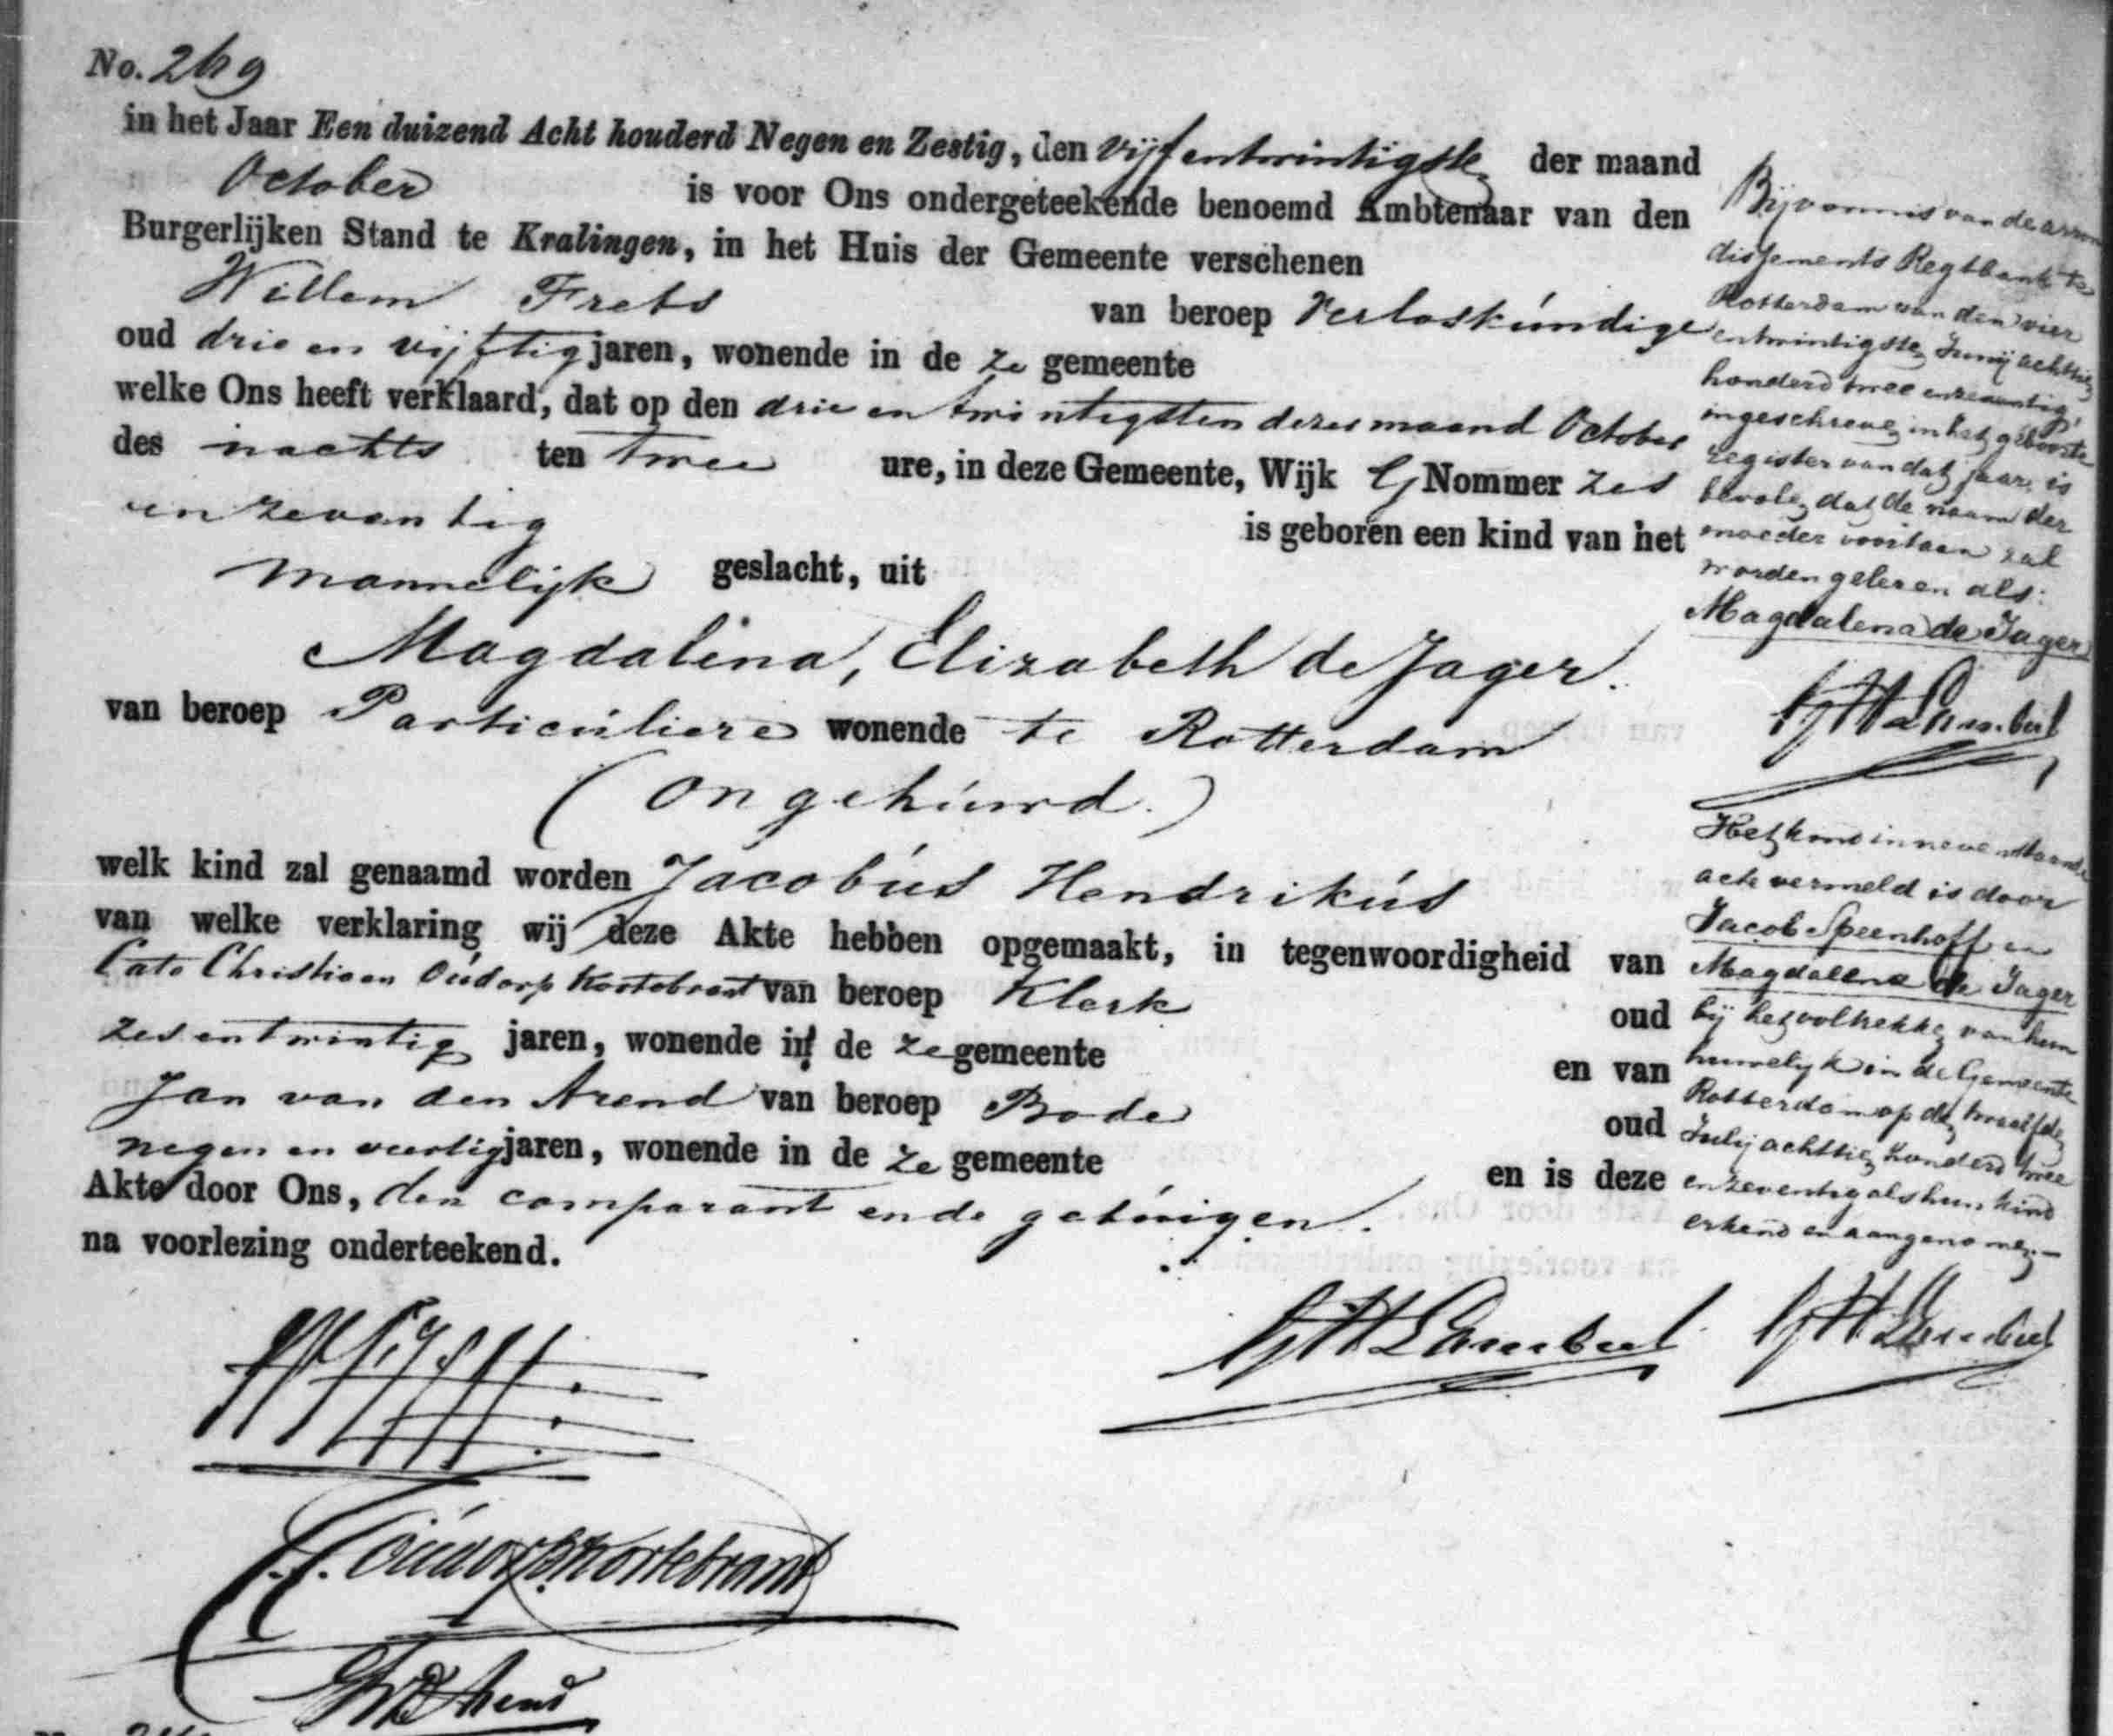 No. 249
in het Jaar Een duizend Acht honderd Negen en Zestig, den vijfentwintigste der maand
October is voor Ons ondergeteekende benoemd Ambtenaar van den
Burgerlijken Stand te Kralingen, in het Huis der Gemeente verschenen
Willem Frets van beroep Verloskúndige
oud drie en vijftig jaren, wonende in de ze gemeente
welke Ons heeft verklaard, dat op den drie en twintigsten dezer maand October
des nachts ten twee ure, in deze Gemeente, Wijk G Nommer zes
en zeventig is geboren een kind van het
mannelijk geslacht, uit
Magdalena, Elizabeth de Jager.
van beroep Particúliere wonende te Rotterdam
(ongehúwd.)
welk kind zal genaamd worden Jacobús Hendrikús
van welke verklaring wij deze Akte hebben opgemaakt, in tegenwoordigheid van
Cato Christiaan Oúdorp Kortebrant van beroep Klerk oud
zes en twintig jaren, wonende in de ze gemeente en van
Jan van den Arend van beroep Bode oud
negen en veertig jaren, wonende in de ze gemeente en is deze
Akte door Ons, den comparant en de getúigen.
na voorlezing onderteekend.
Bij vonnis van de arron
dissements Regtbank te
Rotterdam van den vier
entwintigste Junij achttien
honderd twee enzeventig,
ingeschreven in het geboorte
register van dat jaar, is
bevolen dat de naam der
moeder voortaan zal
worden gelezen als:
Magdalena de Jager
GHLambeel
Het kind in nevenstaande
acte vermeld is door
Jacob Speenhoff en
Magdalena de Jager
bij het voltrekken van hun
huwelijk in de Gemeente
Rotterdam op den twaalfden
Julij achttien honderd twee
enzeventig als hun kind
erkend en aangenomen.
GHLambeel GHLambeel
C.C. Oúdorp Kortebrant
JvdArend